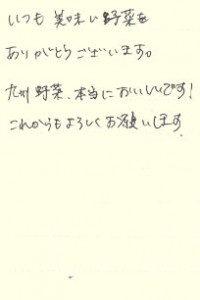 いつも 美味い野菜を
ありがとうございます。
九州野菜、本当においしいです!
これからもよろしくお願いします